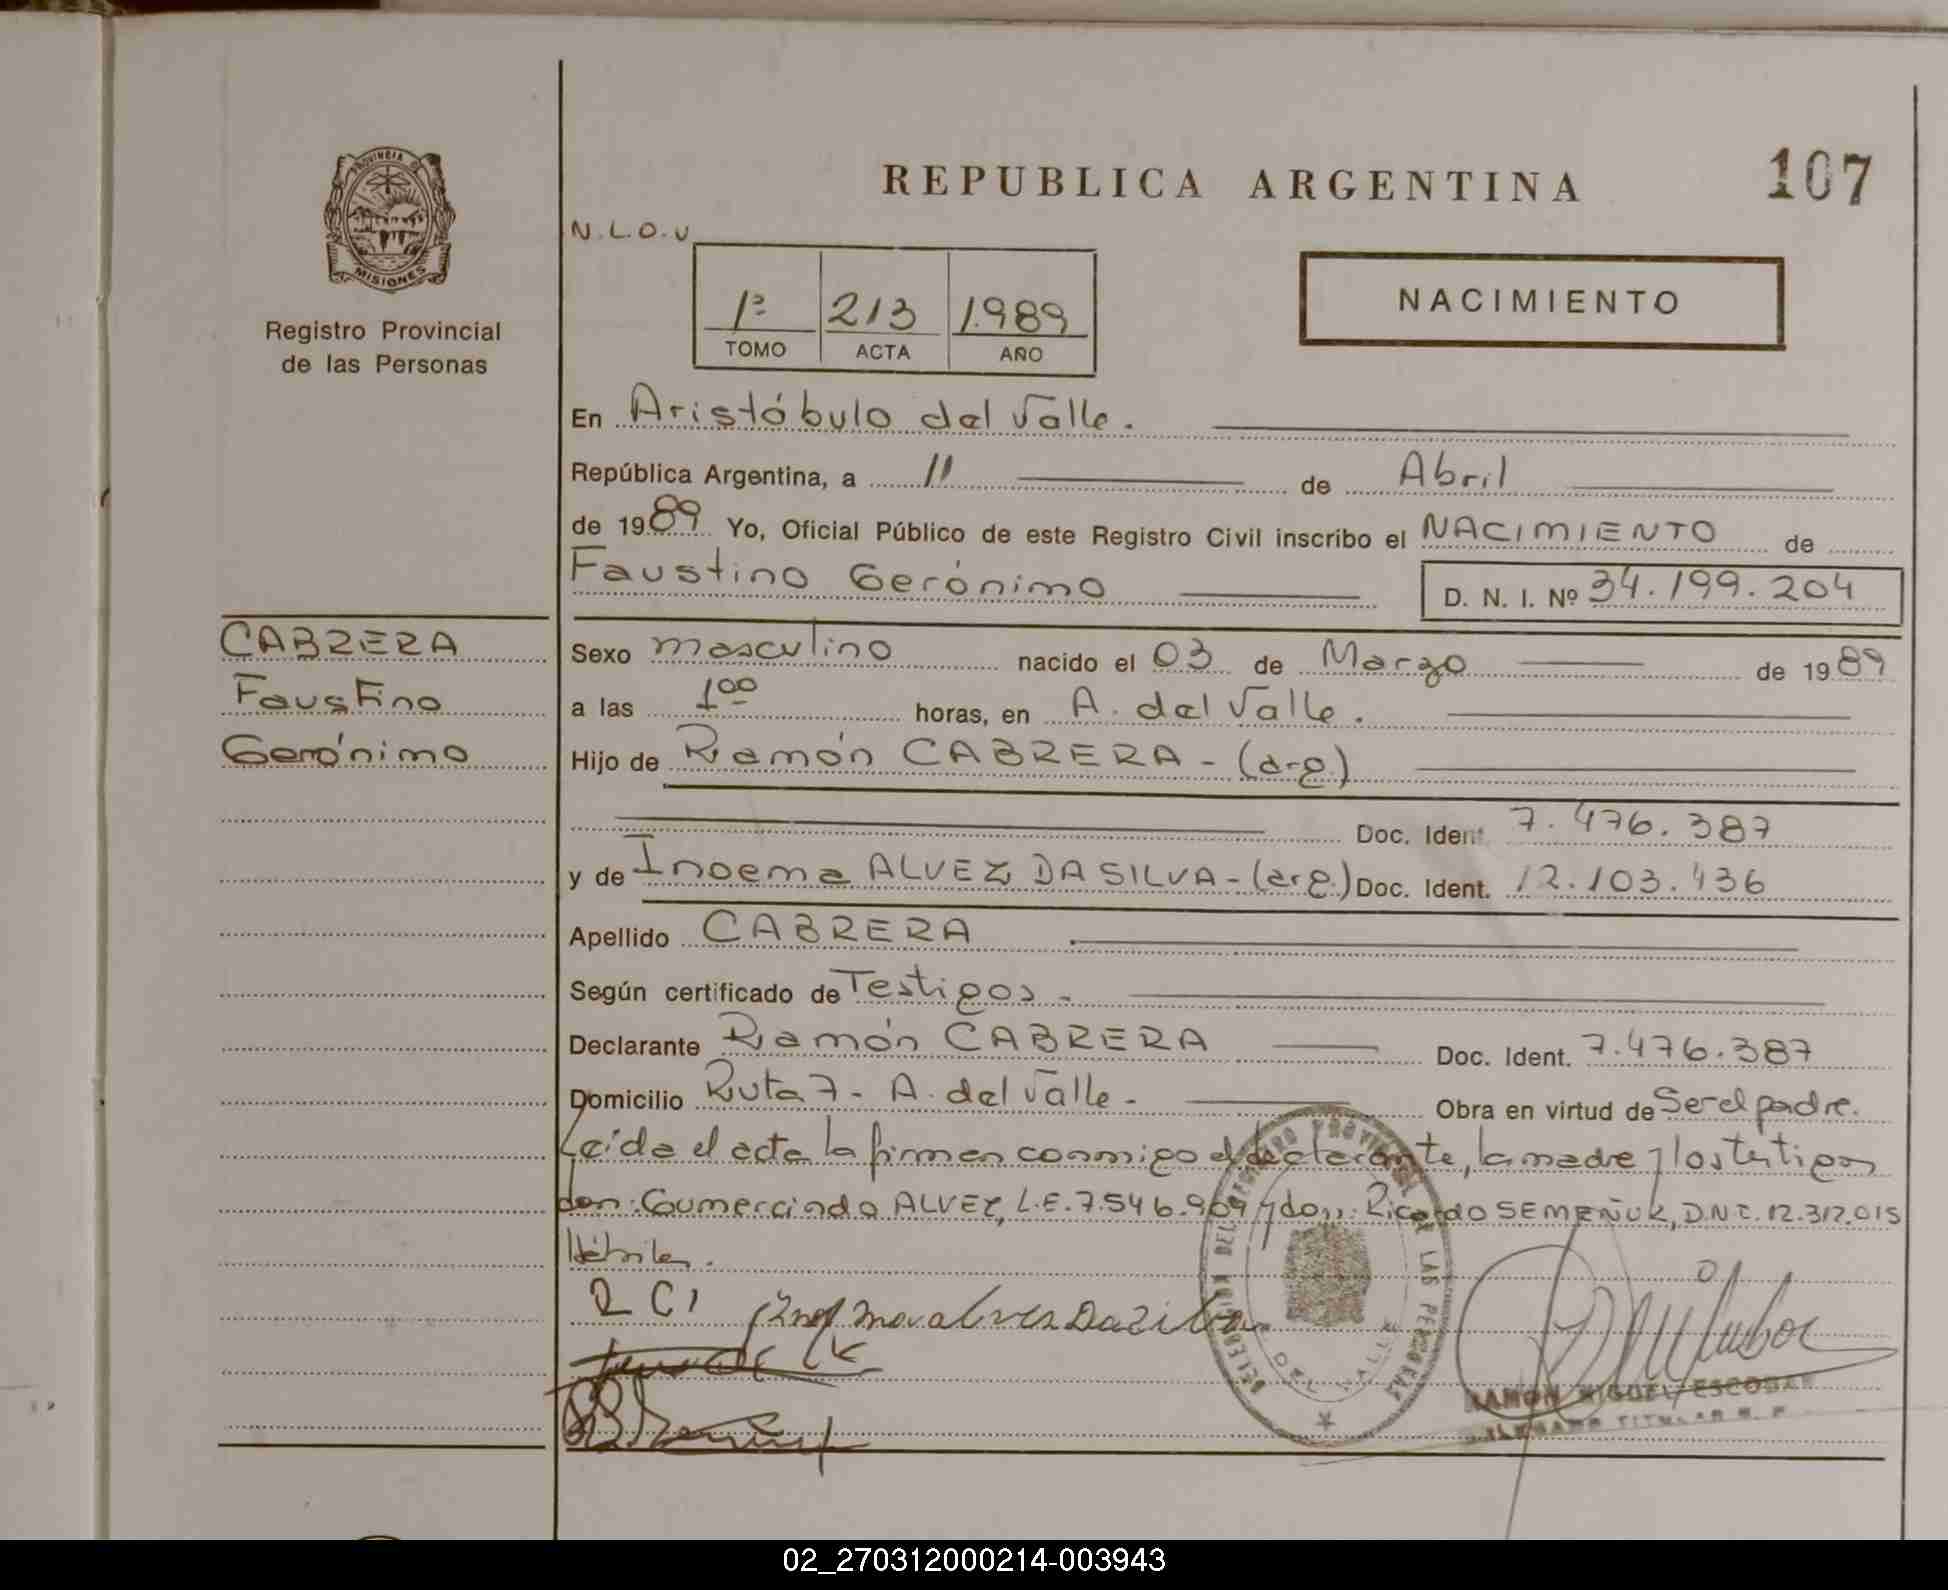 PROVINCIA DE
MISIONES
Registro Provincial
de las Personas
CABRERA
Faustino
Gerónimo
REPUBLICA ARGENTINA
107
N.L.O.U
1º 213 1.989
TOMO ACTA AÑO
NACIMIENTO
En Aristóbulo del Valle.
República Argentina, a 11 de Abril
de 1989 Yo, Oficial Público de este Registro Civil inscribo el NACIMIENTO de
Faustino Gerónimo
D. N. I. Nº 34.199.204
Sexo masculino nacido el 03 de Marzo de 1989
a las 1⁰⁰ horas, en A. del Valle.
Hijo de Ramón CABRERA - (arg.)
Doc. Ident. 7.476.387
y de Inoema ALVEZ DA SILVA - (arg.) Doc. Ident. 12.103.436
Apellido CABRERA
Según certificado de Testigos -
Declarante Ramón CABRERA Doc. Ident. 7.476.387
Domicilio Ruta 7 - A. del Valle - Obra en virtud de Ser el padre.
Leída el acta la firman conmigo el declarante, la madre y los testigos
don: Goumercindo ALVEZ, L.E. 7.546.909 y don: Ricardo SEMEÑUK, D.N.I. 12.312.015
Hábiles.
R C
DELEGACION DEL REGISTRO PROVINCIAL DE LAS PERSONAS
DEL VALLE
RAMON MIGUEL ESCOBAR
DELEGADO TITULAR R. P.
02_270312000214-003943